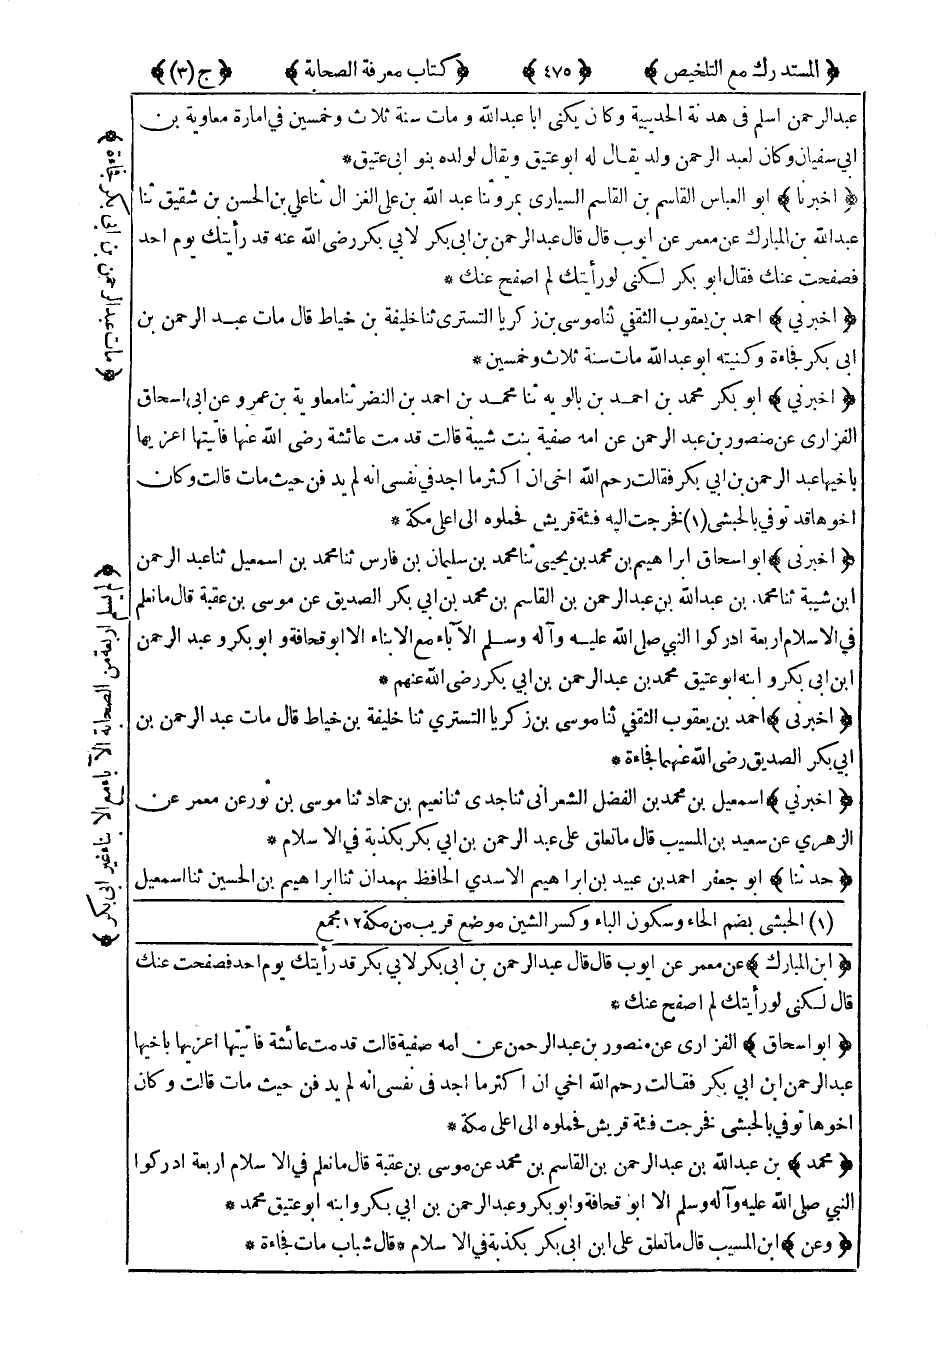 ﴿المستدرك مع التلخيص﴾ ﴿٤٧٥﴾ ﴿كتاب معرفة الصحابة﴾ ﴿ج(٣)﴾
عبدالرحمن اسلم فى هدنة الحديبية وكان يكنى ابا عبدالله ومات سنة ثلاث وخمسين في امارة معاوية بن
ابي سفيان وكان لعبد الرحمن ولد يقال له ابو عتيق ويقال لولده بنو ابى عتيق*
﴿اخبرنا﴾ ابو العباس القاسم بن القاسم السيارى بمرو ثنا عبد الله بن على الغزال ثنا علي بن الحسن بن شقيق ثنا
عبدالله بن المبارك عن معمر عن ايوب قال قال عبدالرحمن بن ابى بكر لابي بكر رضى الله عنه قد رأيتك يوم احد
فصفحت عنك فقال ابو بكر لكنى لو رأيتك لم اصفح عنك*
﴿اخبرني﴾ احمد بن يعقوب الثقفي ثنا موسى بن زكريا التسترى ثنا خليفة بن خياط قال مات عبد الرحمن بن
ابى بكر فجاءة وكنيته ابو عبدالله مات سنة ثلاث وخمسين*
﴿اخبرني﴾ ابو بكر محمد بن احمد بن بالويه ثنا محمد بن احمد بن النضر ثنا معاوية بن عمرو عن ابى اسحاق
الفزارى عن منصور بن عبد الرحمن عن امه صفية بنت شيبة قالت قدمت عائشة رضى الله عنها فآتيتها اعزيها
باخيها عبد الرحمن بن ابي بكر فقالت رحم الله اخى ان اكثر ما اجد في نفسى انه لم يدفن حيث مات قالت وكان
اخوها قد توفي بالحبشى (١) فخرجت اليه فئة قريش فحملوه الى اعلى مكة*
﴿اخبرنى﴾ ابو اسحاق ابراهيم بن محمد بن يحيى ثنا محمد بن سليمان بن فارس ثنا محمد بن اسمعيل ثنا عبد الرحمن
ابن شيبة ثنا محمد بن عبدالله بن عبدالرحمن بن القاسم بن محمد بن ابي بكر الصديق عن موسى بن عقبة قال ما نعلم
في الاسلام اربعة ادركوا النبي صلى الله عليه وآله وسلم الآباء مع الابناء الا ابو قحافة وابو بكر وعبد الرحمن
ابن ابى بكر وابنه ابو عتيق محمد بن عبدالرحمن بن ابي بكر رضى الله عنهم*
﴿اخبرنى﴾ احمد بن يعقوب الثقفي ثنا موسى بن زكريا التستري ثنا خليفة بن خياط قال مات عبد الرحمن بن
ابي بكر الصديق رضى الله عنهما فجاءة*
﴿اخبرني﴾ اسمعيل بن محمد بن الفضل الشعرانى ثنا جدى ثنا نعيم بن حماد ثنا موسى بن ثور عن معمر عن
الزهري عن سعيد بن المسيب قال ما تعلق على عبد الرحمن بن ابي بكر بكذبة في الاسلام*
﴿حدثنا﴾ ابو جعفر احمد بن عبيد بن ابراهيم الاسدي الحافظ بهمدان ثنا ابراهيم بن الحسين ثنا اسمعيل
(١) الحبشى بضم الحاء وسكون الباء وكسر الشين موضع قريب من مكة ١٢ مجمع
﴿ابن المبارك﴾ عن معمر عن ايوب قال قال عبدالرحمن بن ابى بكر لابي بكر قد رأيتك يوم احد فصفحت عنك
قال لكنى لو رأيتك لم اصفح عنك*
﴿ابو اسحاق﴾ الفزارى عن منصور بن عبدالرحمن عن امه صفية قالت قدمت عائشة فآتيتها اعزيها باخيها
عبدالرحمن ابن ابي بكر فقالت رحم الله اخي ان اكثر ما اجد فى نفسى انه لم يدفن حيث مات قالت وكان
اخوها توفي بالحبشى فخرجت فئة قريش فحملوه الى اعلى مكة*
﴿محمد﴾ بن عبدالله بن عبدالرحمن بن القاسم بن محمد عن موسى بن عقبة قال ما نعلم في الاسلام اربعة ادركوا
النبي صلى الله عليه وآله وسلم الا ابو قحافة وابو بكر وعبدالرحمن بن ابي بكر وابنه ابو عتيق محمد*
﴿وعن﴾ ابن المسيب قال ما تعلق على ابن ابى بكر بكذبة في الاسلام *قال شباب مات فجاءة*
﴿مات عبدالرحمن بن ابى بكر فجاءة﴾
﴿لم يسلم اربعة من الصحابة الآباء مع الابناء غير ابى بكر﴾